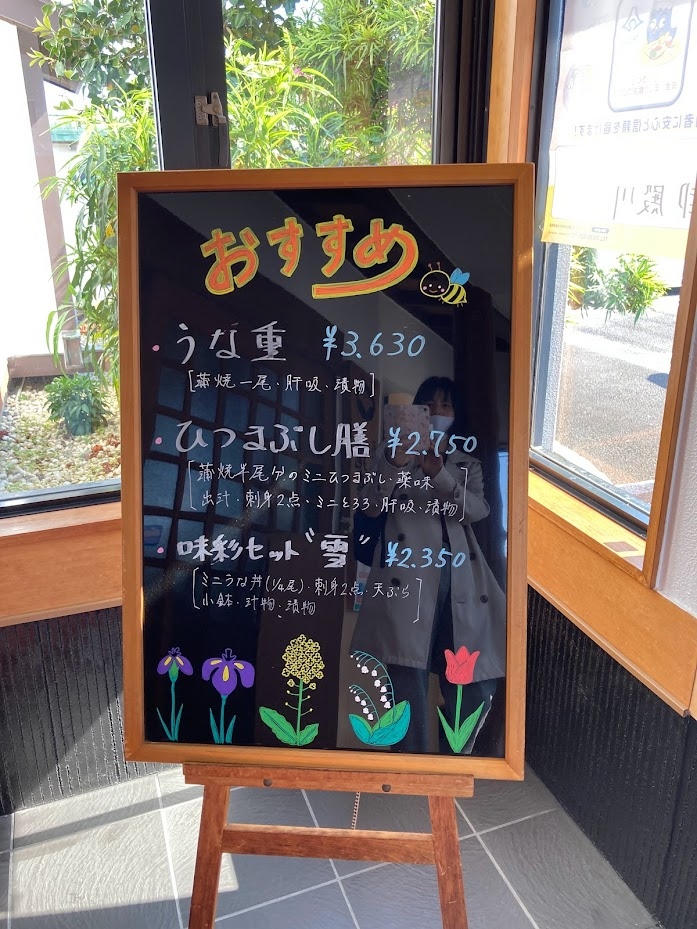 おすすめ
・うな重 ¥3.630
[蒲焼一尾・肝吸・漬物]
・ひつまぶし膳 ¥2.750
[蒲焼半尾分のミニひつまぶし・薬味
出汁・刺身2点・ミニとろろ・肝吸・漬物]
・味彩セット"雪" ¥2.350
[ミニうな丼(1/4尾)・刺身2点・天ぷら
小鉢・汁物・漬物]
者に安心と信頼を届けます!
御殿川